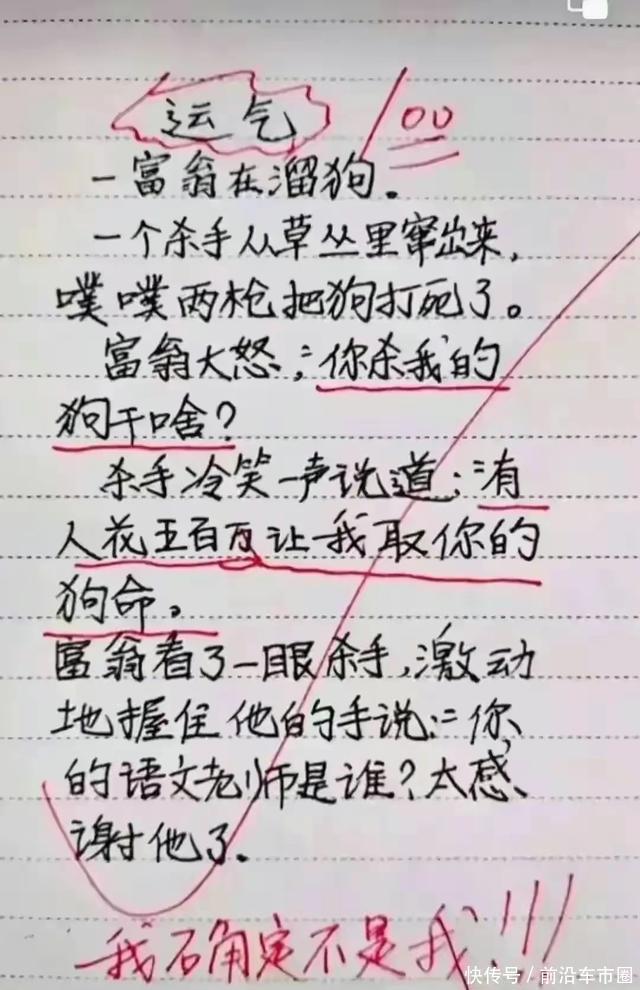 运气 100
一富翁在溜狗。
一个杀手从草丛里窜出来,
噗噗两枪把狗打死了。
富翁大怒:“你杀我的
狗干啥?
杀手冷笑一声说道:“有
人花五百万让我取你的
狗命。
富翁看了一眼杀手,激动
地握住他的手说:“你
的语文老师是谁?太感
谢他了.
我确定不是我!!!
快传号/前沿车市圈